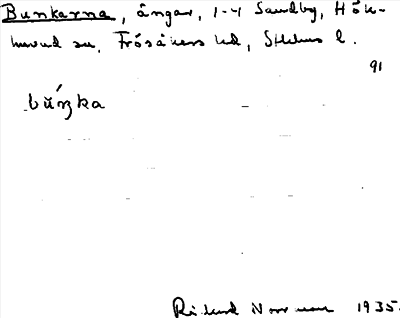 Bunkarna, ängar, 1-4 Sandby, Hök-
huvud sn, Frösåkers hd, Sthlms l.
91
bŭ́ŋka
Rikard Norrman 1935.